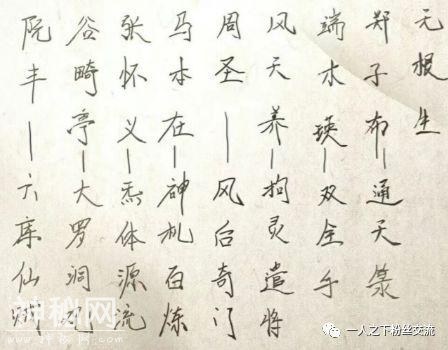 无根生
郑子布—通天箓
端木瑛—双全手
风天养—拘灵遣将
周圣—风后奇门
马本在—神机百炼
张怀义—炁体源流
谷畸亭—大罗洞观
阮丰—六库仙贼
神秘网
一人之下粉丝交流